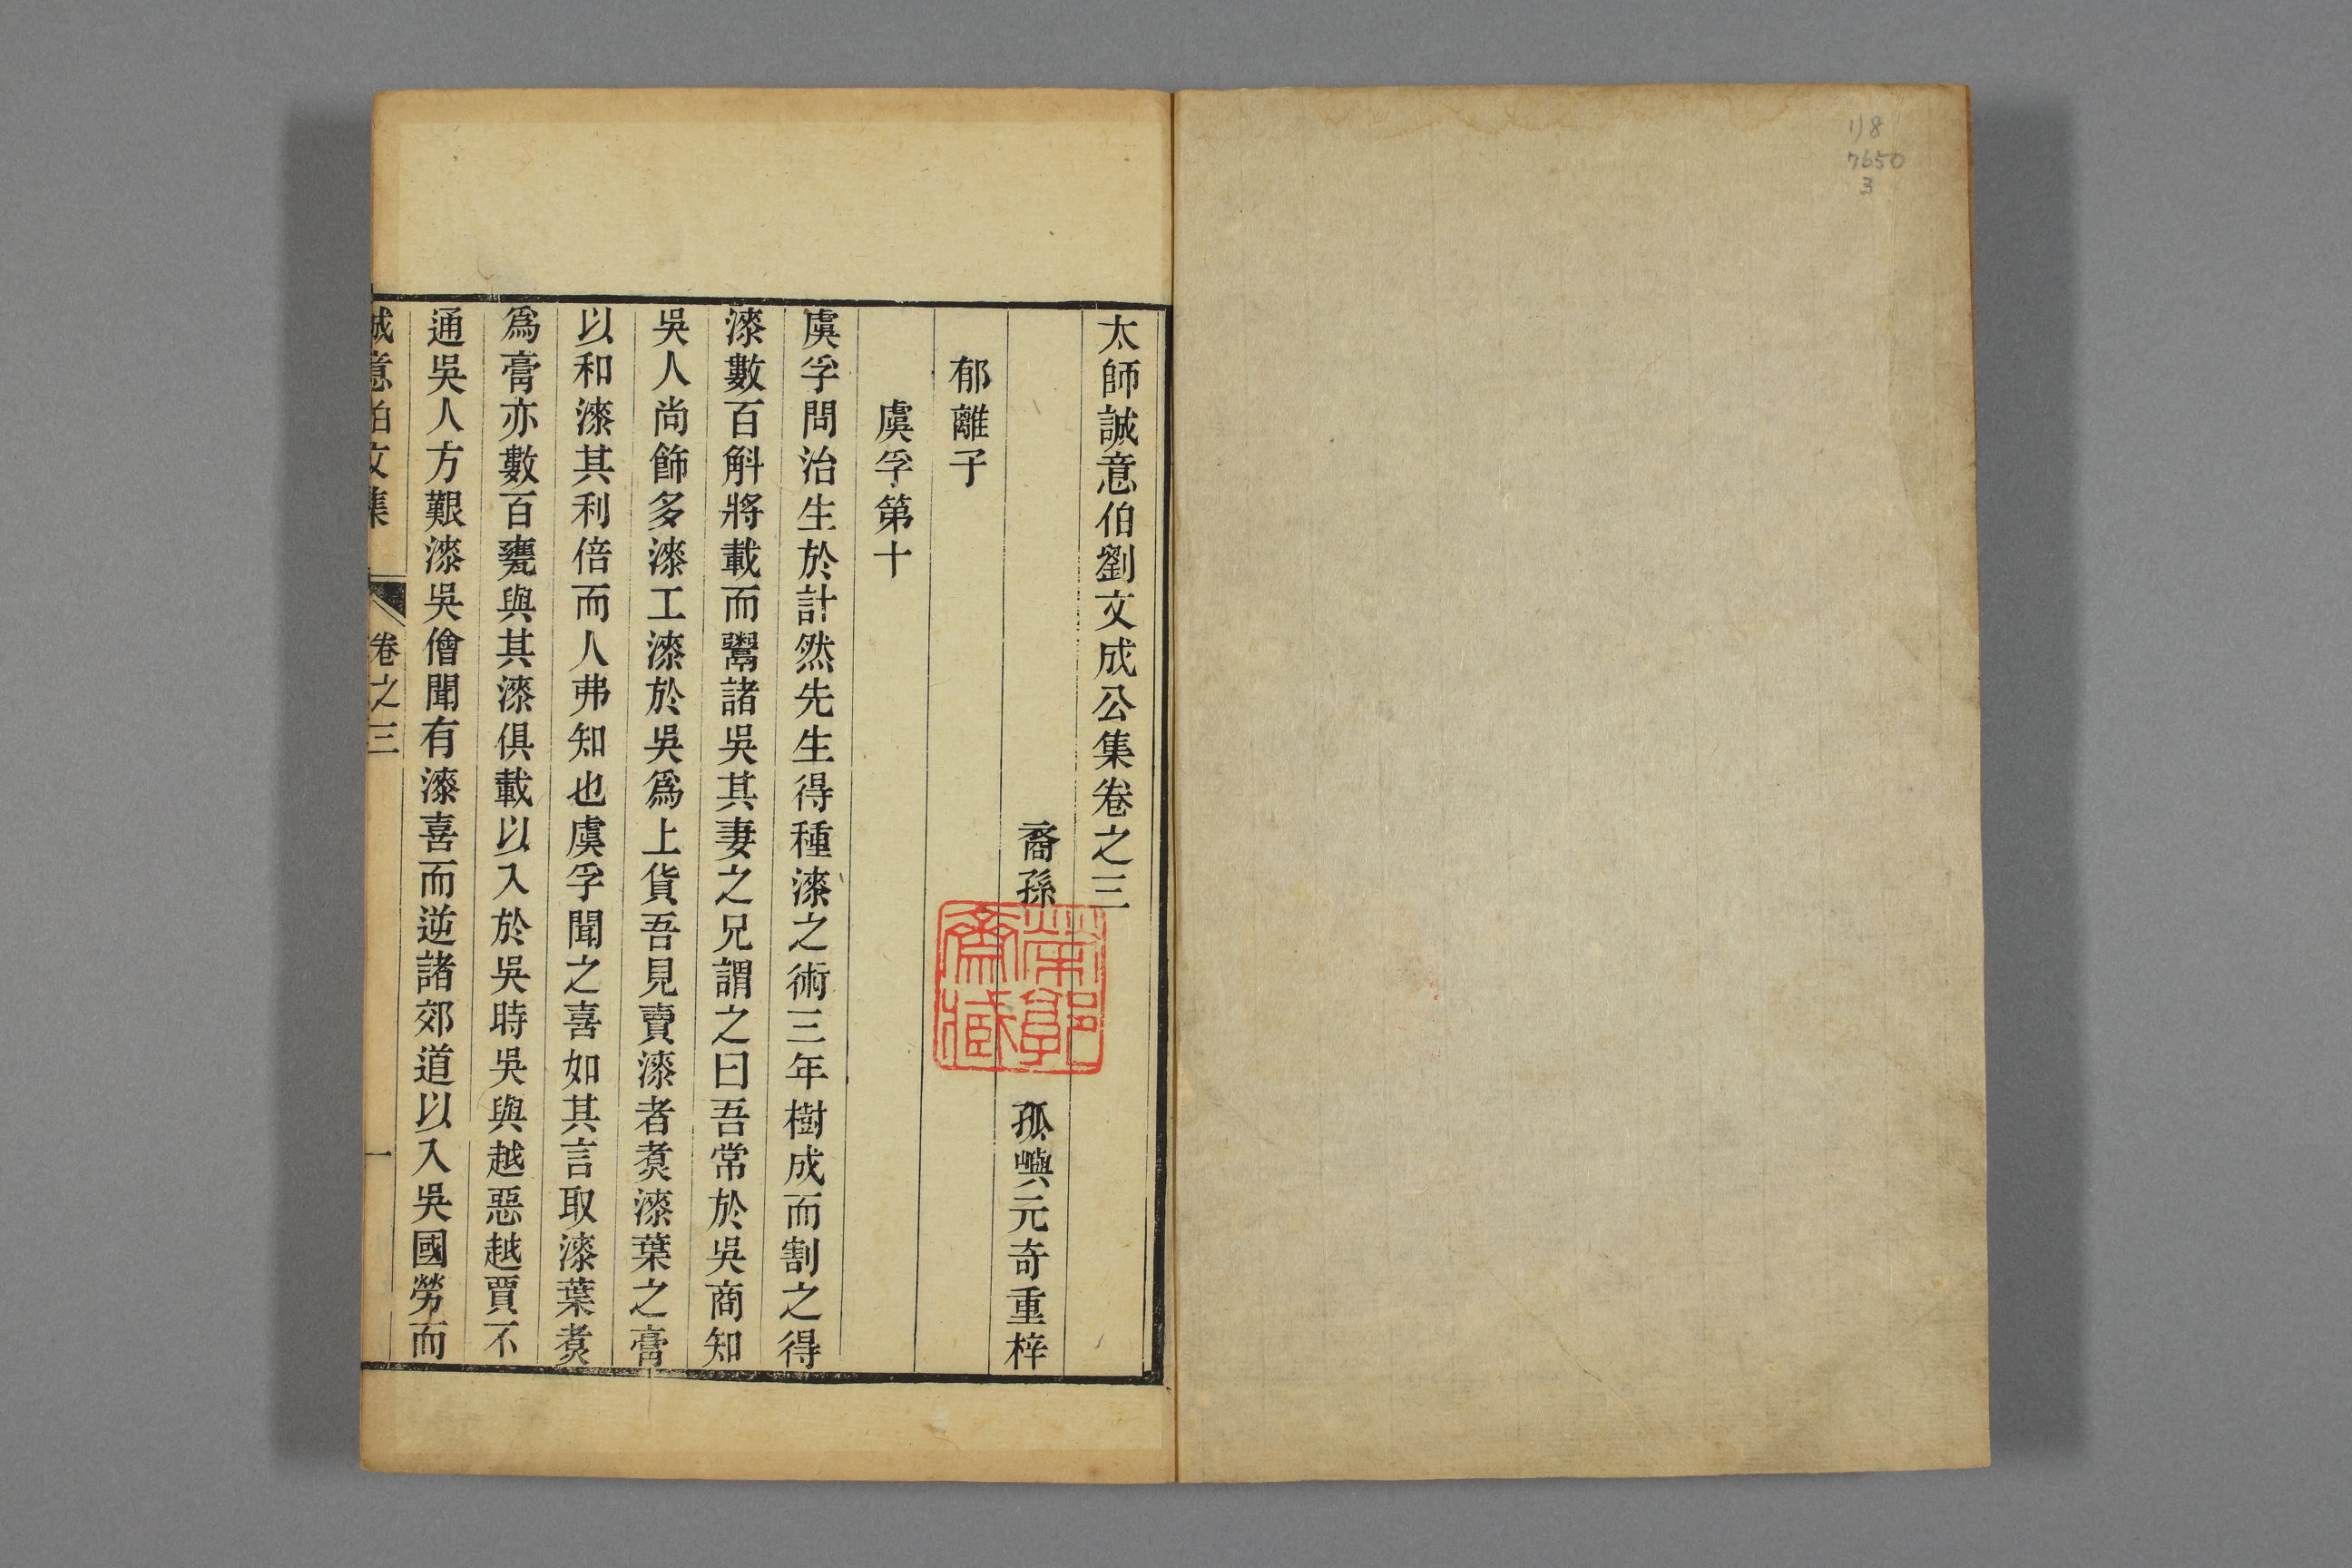 太師誠意伯劉文成公集卷之三
裔孫 孤嶼元奇重梓
郁離子
虞孚第十
虞孚問治生於計然先生得種漆之術三年樹成而割之得
漆數百斛將載而鬻諸吳其妻之兄謂之曰吾常於吳商知
吳人尚飾多漆工漆於吳爲上貨吾見賣漆者煑漆葉之膏
以和漆其利倍而人弗知也虞孚聞之喜如其言取漆葉煑
爲膏亦數百甕與其漆俱載以入於吳時吳與越惡越賈不
通吳人方艱漆吳儈聞有漆喜而逆諸郊道以入吳國勞而
誠意伯文集 卷之三 一
7650
3